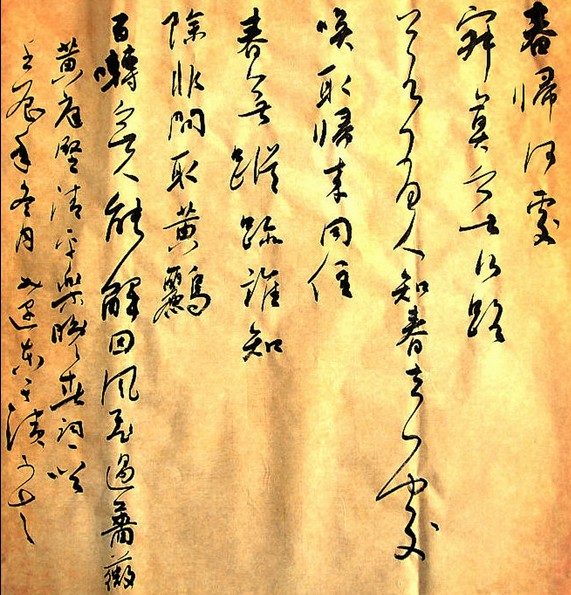 春歸何處
寂寞無行路
若有人知春去處
喚取歸來同住
春無蹤跡誰知
除非問取黃鸝
百囀無人能解因風飛過薔薇
黃庭堅清平樂晚春詞一
壬辰年冬月